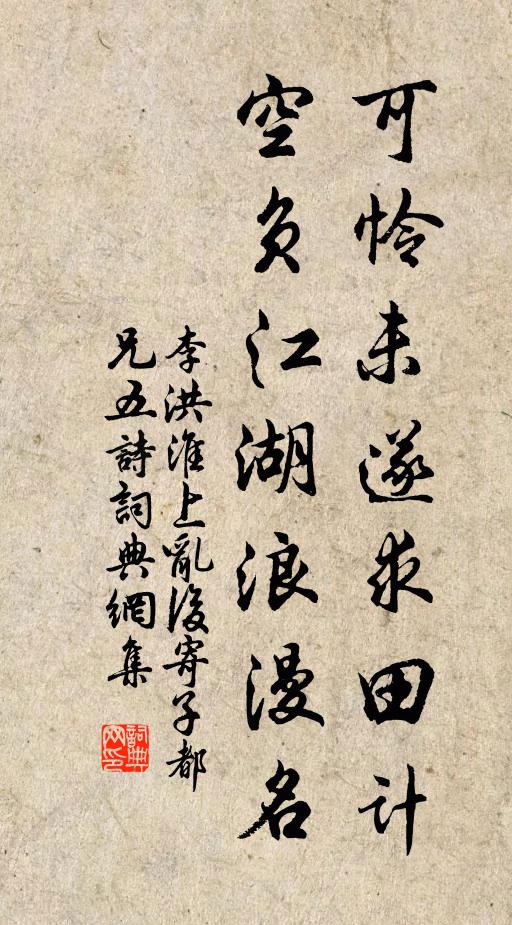 可怜未遂求田计
空负江湖浪漫名
李洪淮上亂後寄子都
兄五詩詞典網集
詞典網印